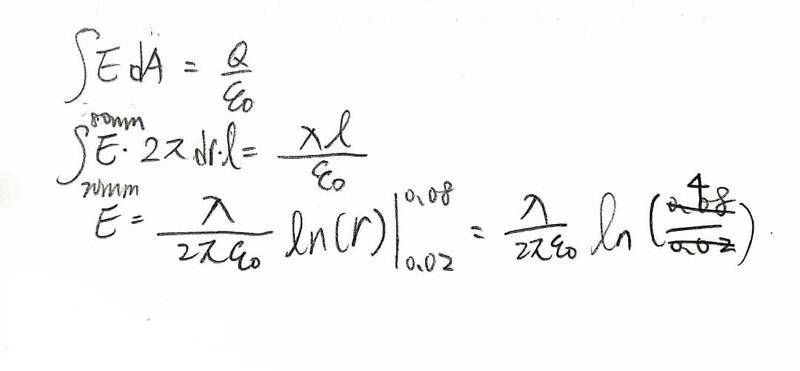 ∫E dA = Q/ε₀
∫_{20mm}^{80mm} E · 2π dr · l = λl/ε₀
E = λ/(2πε₀) ln(r)|_{0.02}^{0.08} = λ/(2πε₀) ln(4)